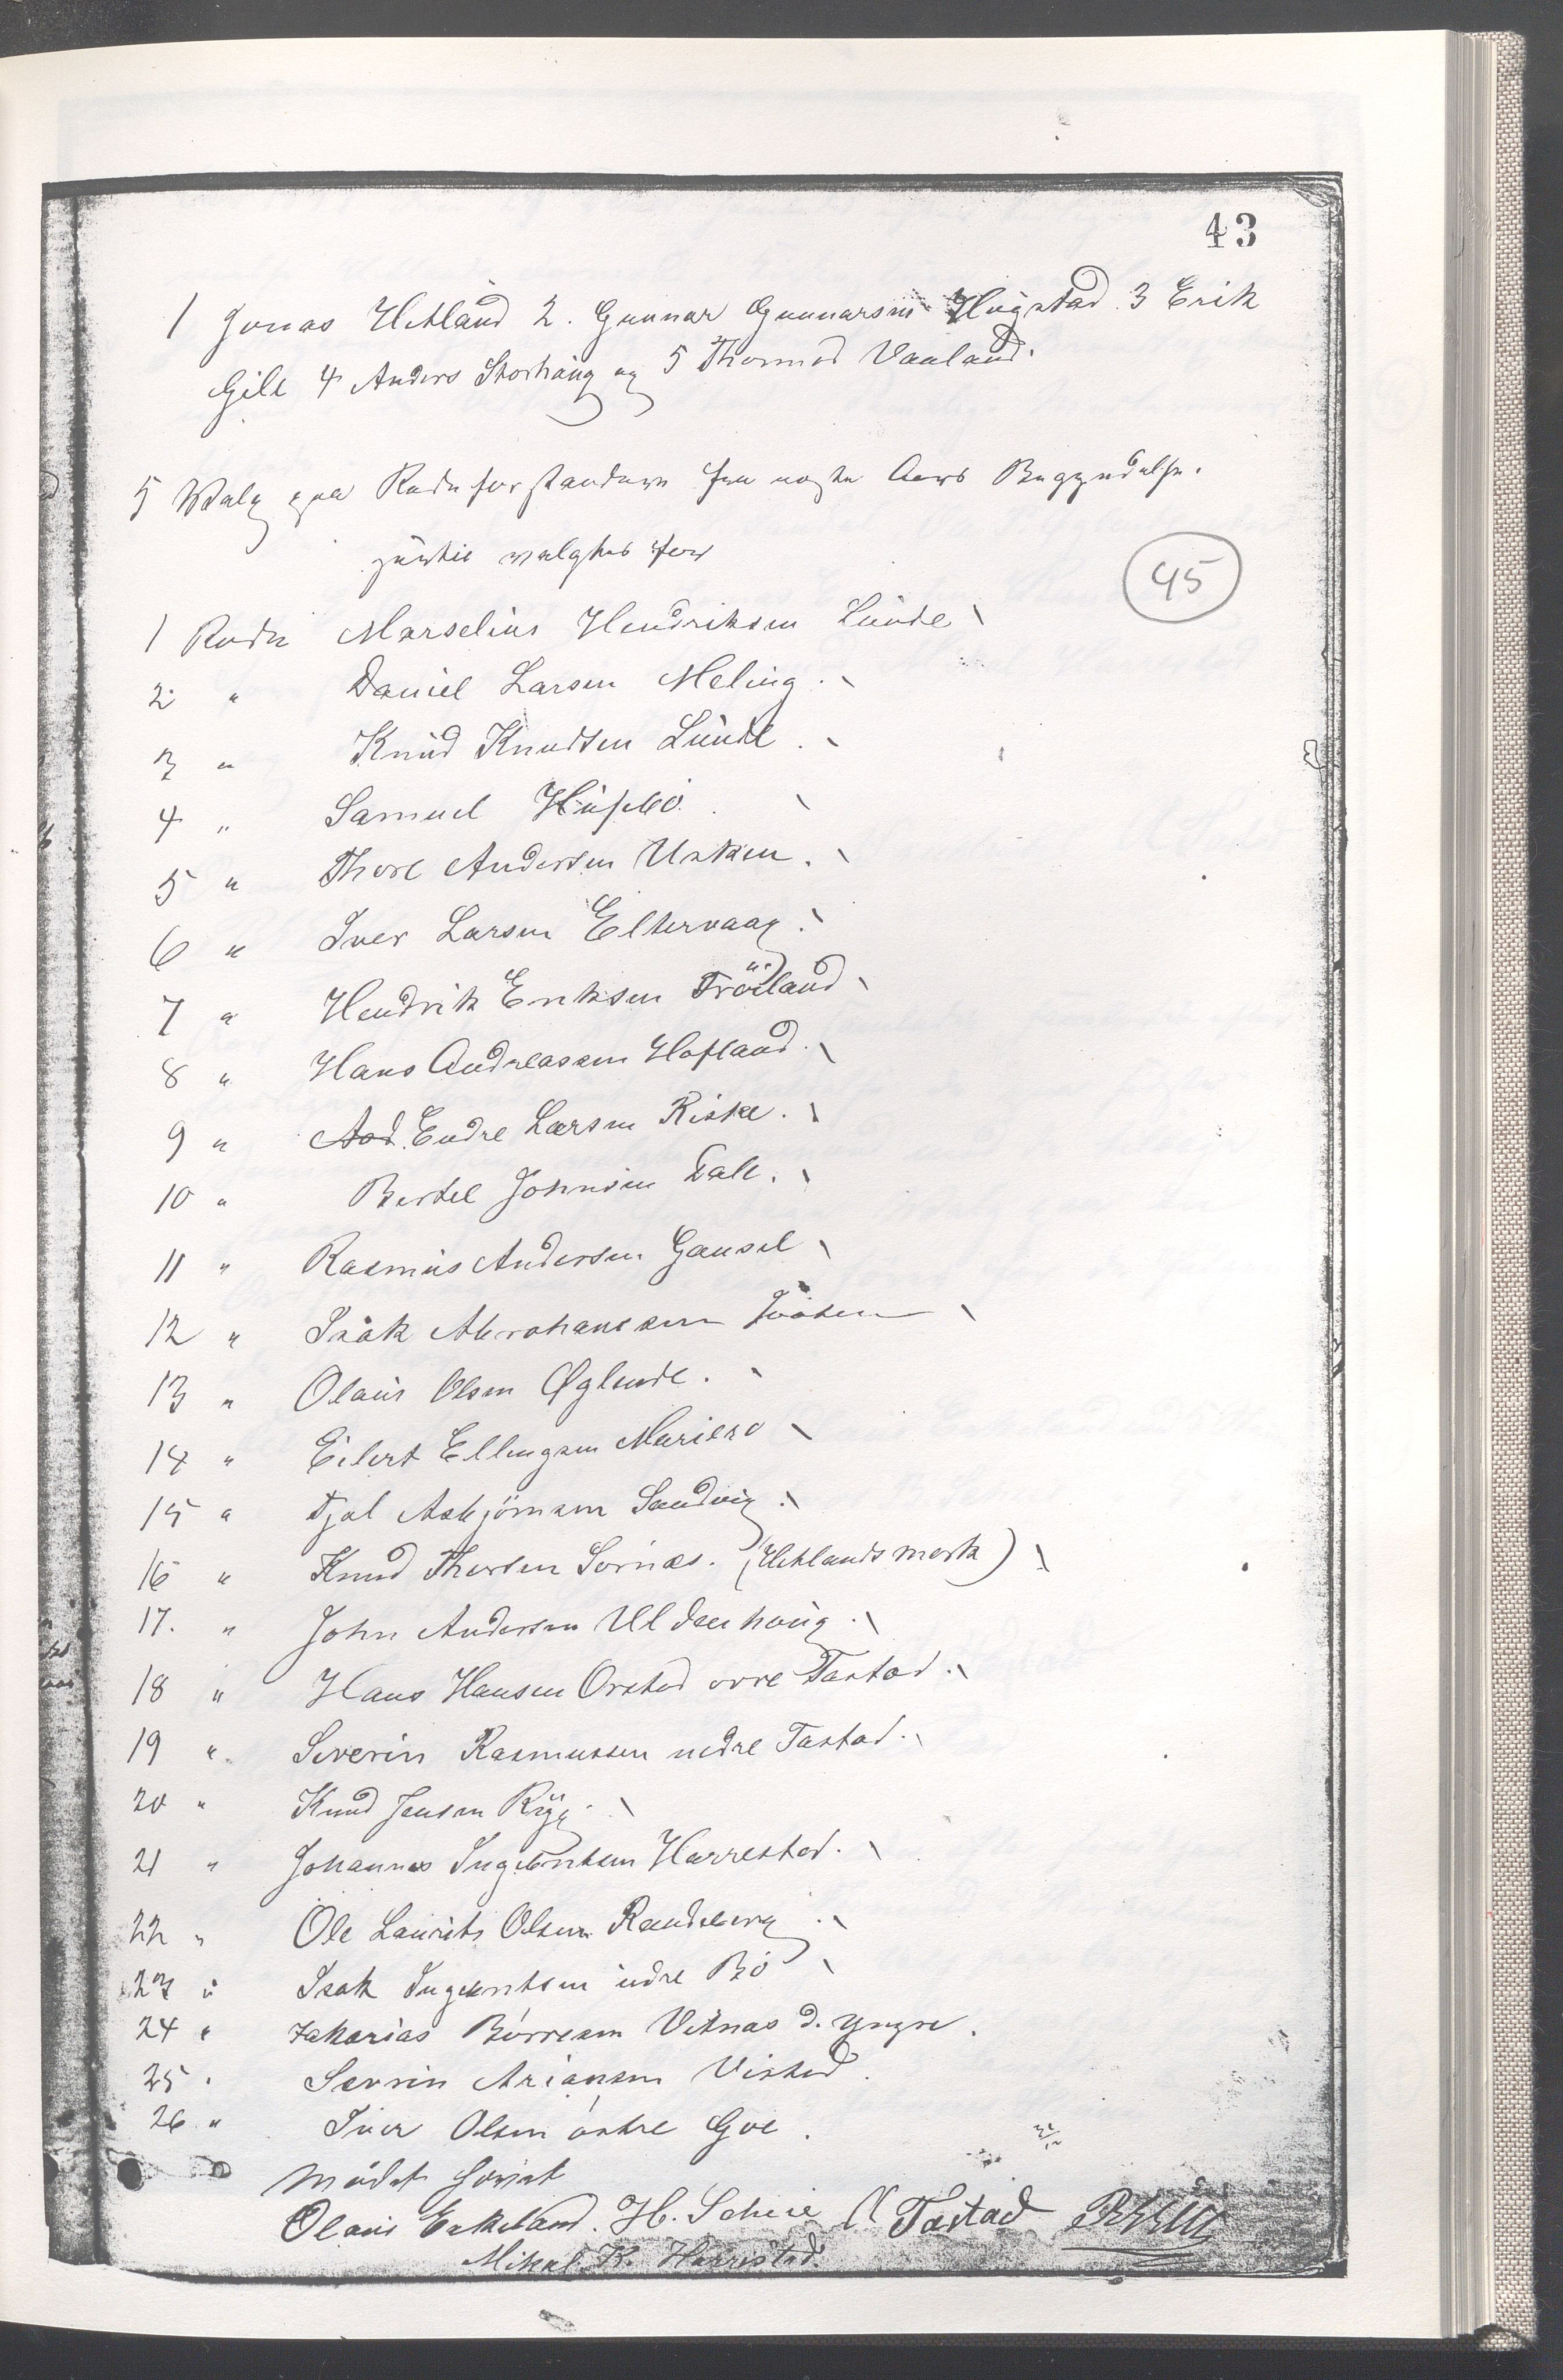 43
1 Jonas Hetland 2. Gunnar Gunnarsen Hugstad 3 Erik
Gilt 4 Anders Storhaug og 5 Thormod Vauland.
5 Valg paa Rodeforstandere fra næste Aars Begyndelse.
hertil valgtes for
45
1 Rode Marselius Hendriksen Lunde
2 " Daniel Larsen Meling.
3 " Knud Knudsen Lunde.
4 " Samuel Husebö.
5 " Thore Andersen Usken.
6 " Iver Larsen Eltervaag.
7 " Hendrik Eriksen Tröiland
8 " Hans Andreassen Hofland.
9 " Aad. Endre Larsen Riske.
10 " Bertel Johnsen Dale.
11 " Rasmus Andersen Gausel
12 " Isak Abrahamsen
13 " Olaus Olsen Øglende.
14 " Eilert Ellingsen Mariero
15 " Asbjörnsen Sandvig.
16 " Knud Thorsen Sornæs. (Hetlandsmark)
17. " John Andersen Ullenhaug.
18 " Hans Hansen Orstad ovre Tastad.
19 " Severin Rasmussen nedre Tastad.
20 " Knud Jensen Rygg.
21 " Johannes Ingebretsen Harrestad.
22 " Ole Laurits Olsen Randeberg.
23 " Isak Ingebretsen indre Bö
24 " Zakarias Börresen Vitnæs d. yngre.
25 " Severin Vistad.
26 " Iver Olsen östre Goe.
Mödet hævet
Olaus Eskeland. H. Scheie Tastad
Mikal K. Harrestad.